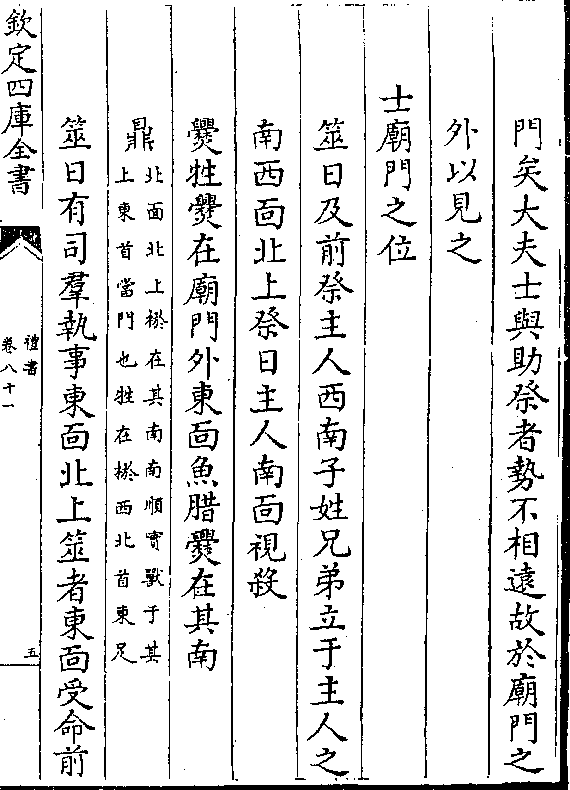 門矣大夫士與助祭者勢不相遠故於廟門之
外以見之
士廟門之位
筮日及前祭主人西南子姓兄弟立于主人之
南西面北上祭日主人南面視殺
爨牲爨在廟門外東面魚腊爨在其南
鼎北面北上棜在其南南順實獸于其
上東首當門也牲在棜西北首東足
筮日有司羣執事東面北上筮者東面受命前
欽定四庫全書
禮書
卷八十一
五